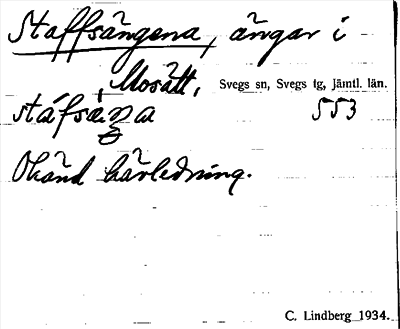 Staffsängena, ängar i
Mosätt, Svegs sn, Svegs tg, Jämtl. län.
553
Okänd härledning.
C. Lindberg 1934.